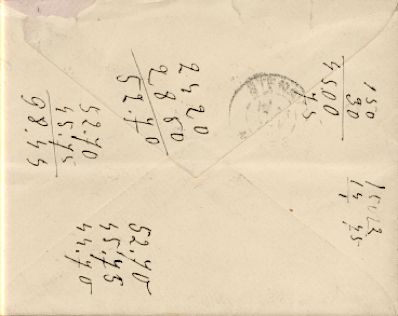 150
30
4500
45
24 20
28 50
52.70
52.70
45.75
98.45
52.70
45.75
44.70